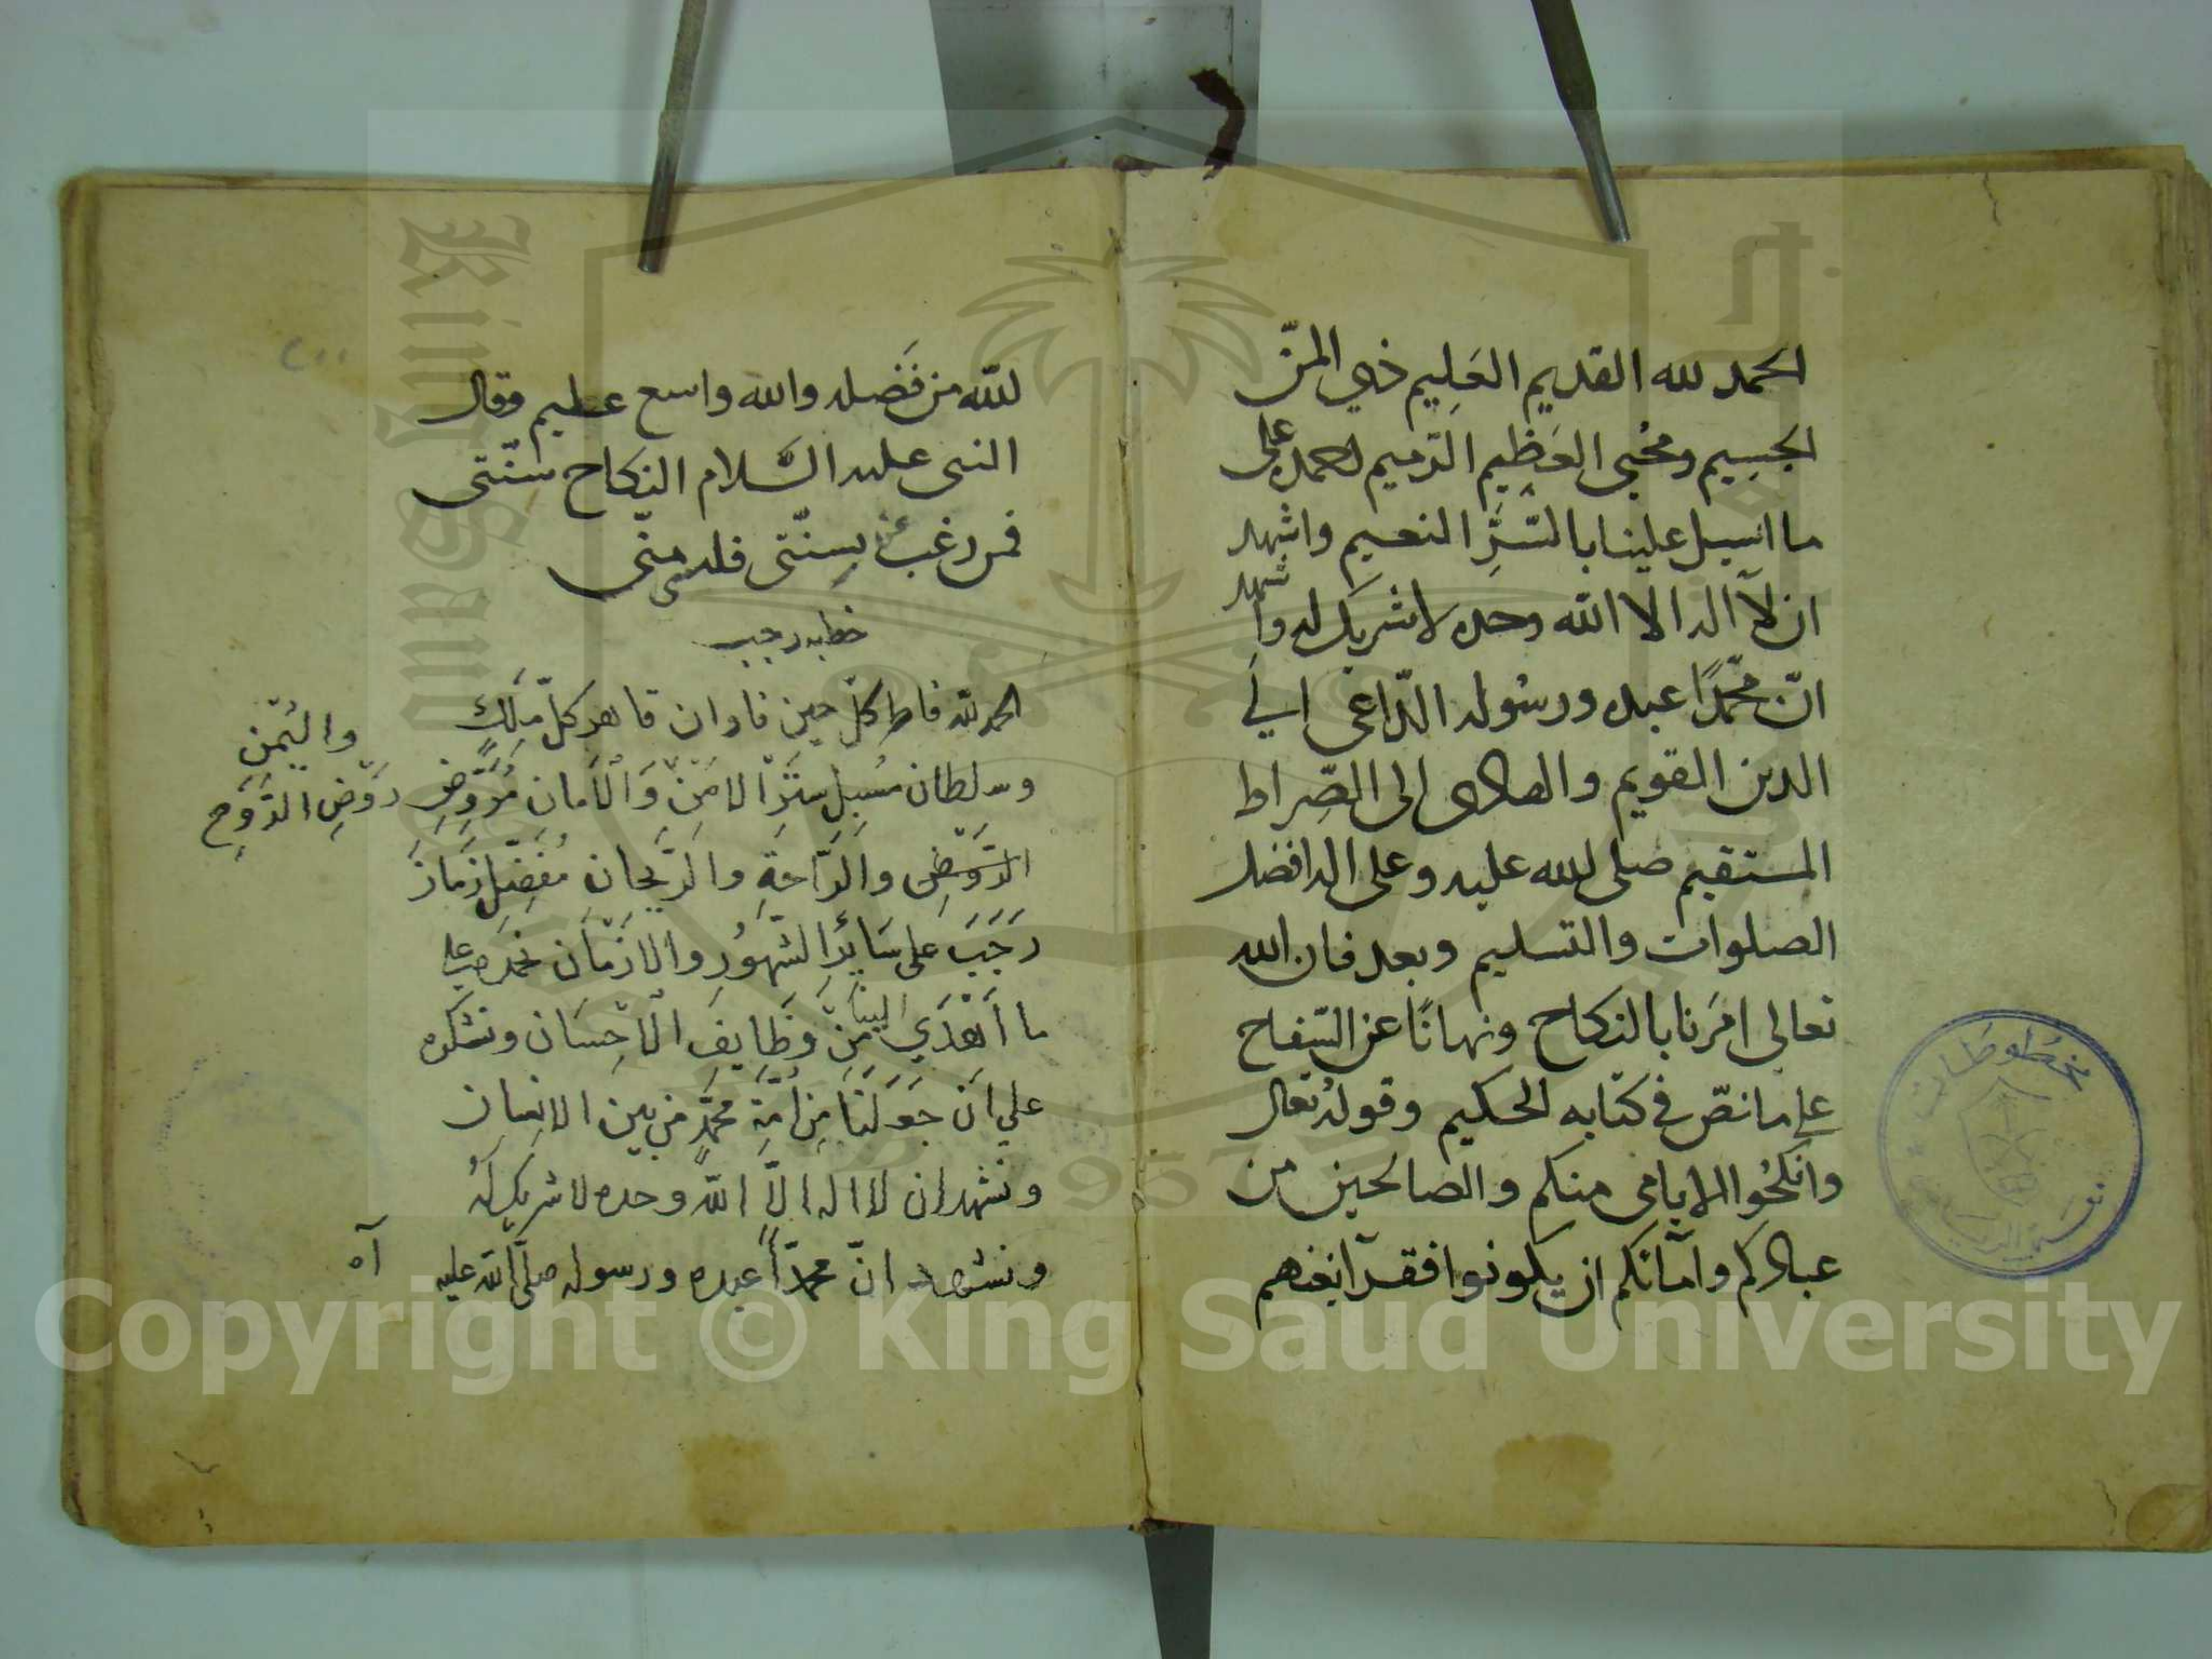 الحمد لله القديم العَلِيم ذي المنّ
الجسِيم ومُحْيى العَظِيم الرّميم احمده على
ما اسبل علينا بالسّتر النعيم واشهد
ان لآ اله الا الله وحده لا شريك له واشهد
انّ محمّدًا عبده ورسُوله الدّاعى الي
الدين القويم والهادى الى الصِّراط
المستقيم صلى الله عليه وعلى اله افضل
الصلوات والتسليم وبعد فان الله
تعالى امَرَنا بالنكاح ونهانَا عن السّفاح
على ما نصّ فى كتابه الحكيم وقولهُ تعال
وانكحُوا الايامى منكم والصالحين من
عبادكم وامآئكم ان يكونوا فقرآ يغنهم
الله من فَضله والله واسع عليم وقال
النبى عليه السَّلام النكاح سُنّتى
فمن رغب عن سِنّتى فليس منّى
خطبه رجب
الحمد لله فاطر كلّ حين فاوان قاهر كلّ مَلِكٍ
وسلطان مُسْبِلِ سِتَرِ الامَنْ وَالْاَمَان مُرَوِّضِ رَوْضِ الرَّوَحِ
واليُمْن
الرَّوَضِ والرَّاحَةِ والرَّيحان مُفَضِّل زَمَان
رَجَبَ على سَائِرِ الشّهُورِ والازمَان نحمده على
ما اَهْدَي الينا مِنْ وَظَايِفِ الْاِحْسَان ونشكره
علي اَن جَعَلَنَا مِن اُمَّةِ مُحَمَّدٍ من بين الانسان
ونشهد ان لا اله الّا الله وحده لا شريك لَهُ
ونشهد انّ محمّداً عبده ورسوله صلّى الله عليه
آه
مخطوطات
King Saud
1957
Copyright © King Saud University